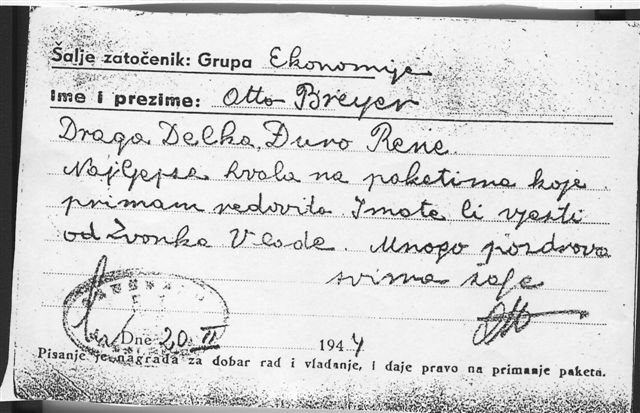 Šalje zatočenik: Grupa Ekonomije
Ime i prezime: Otto Breyer
Draga Delka, Đuro Rene
Najljepsa hvala na paketima koje
primam redovito. Imate li vjesti
od Zvonka Vlade. Mnogo pozdrova
svima šalje
Otto
Dne 20. II 1944
Pisanje je nagrada za dobar rad i vladanje, i daje pravo na primanje paketa.